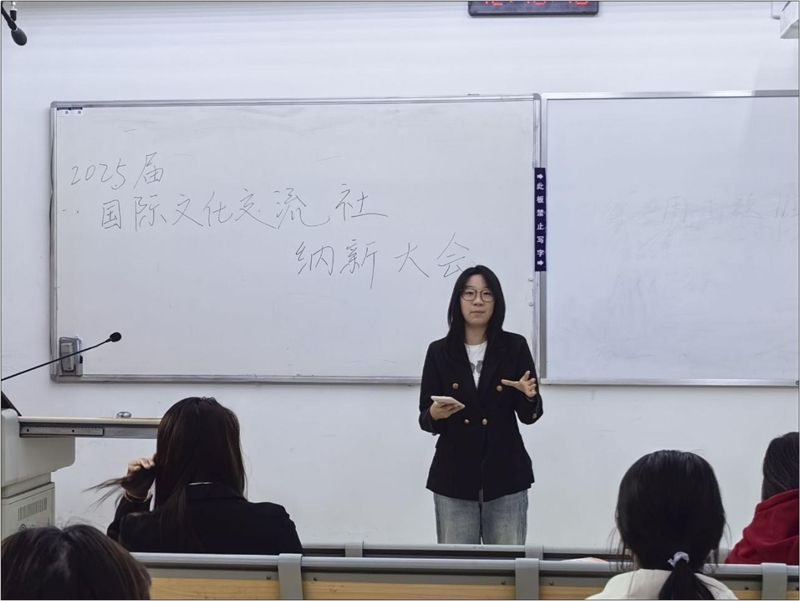 2025届
国际文化交流社
纳新大会
→此板禁止写字→